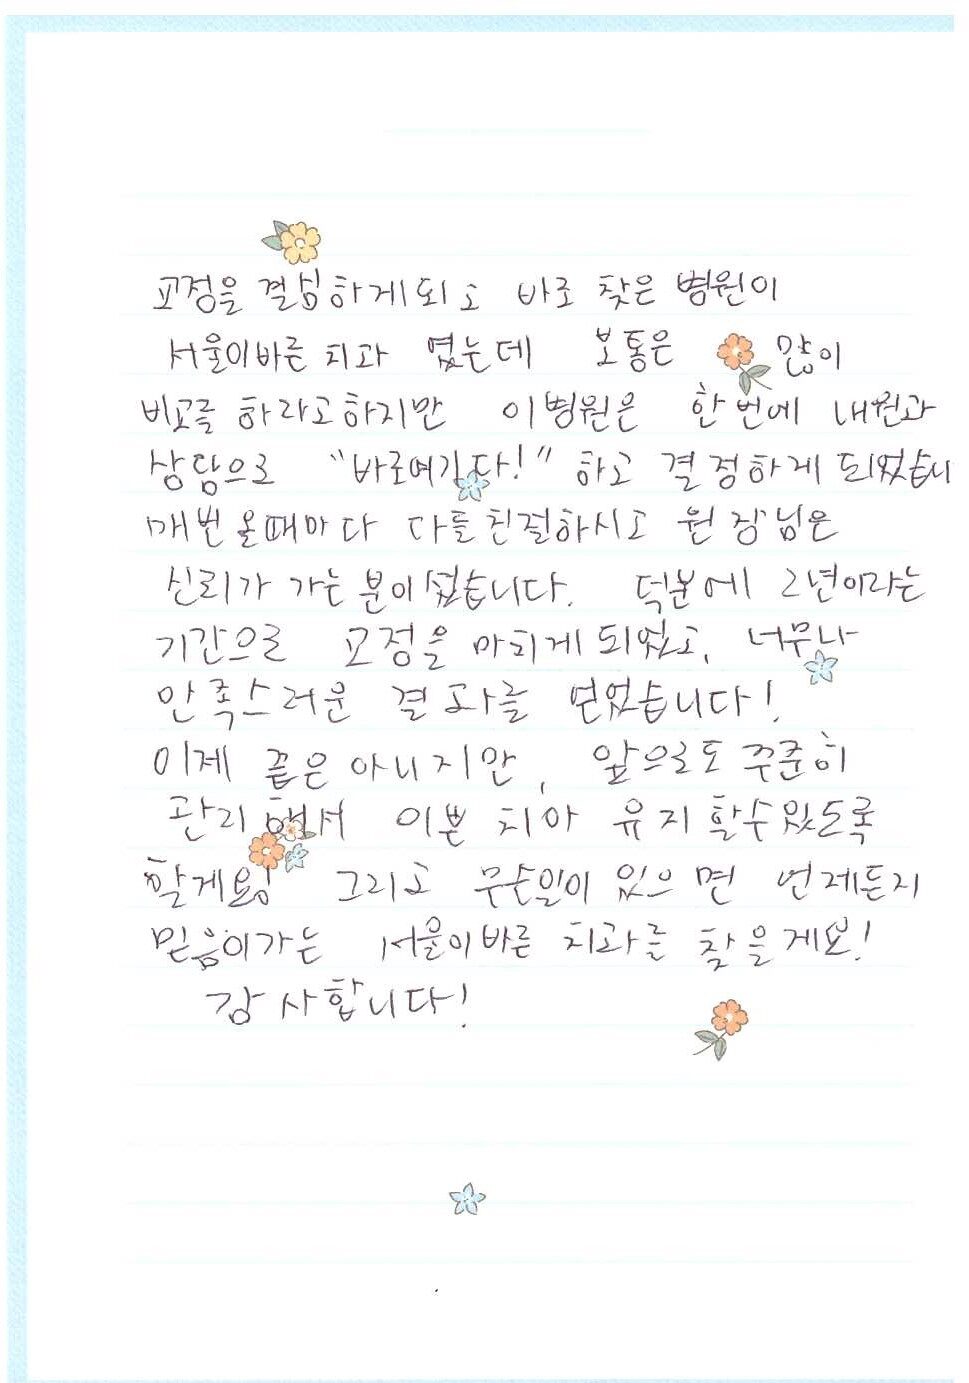 교정을 결심하게되고 바로 찾은 병원이
서울이바른 치과 였는데 보통은 많이
비교를 하라고하지만 이병원은 한번에 내원과
상담으로 "바로여기다!" 하고 결정하게 되었습니
매번 올때마다 다들친절하시고 원장님은
신뢰가 가는 분이셨습니다. 덕분에 2년이라는
기간으로 교정을 마치게 되었고, 너무나
만족스러운 결과를 얻었습니다!
이게 끝은 아니지만, 앞으로도 꾸준히
관리해서 이쁜 치아 유지할수있도록
할게요! 그리고 무슨일이 있으면 언제든지
믿음이가는 서울이바른 치과를 찾을게요!
감사합니다!